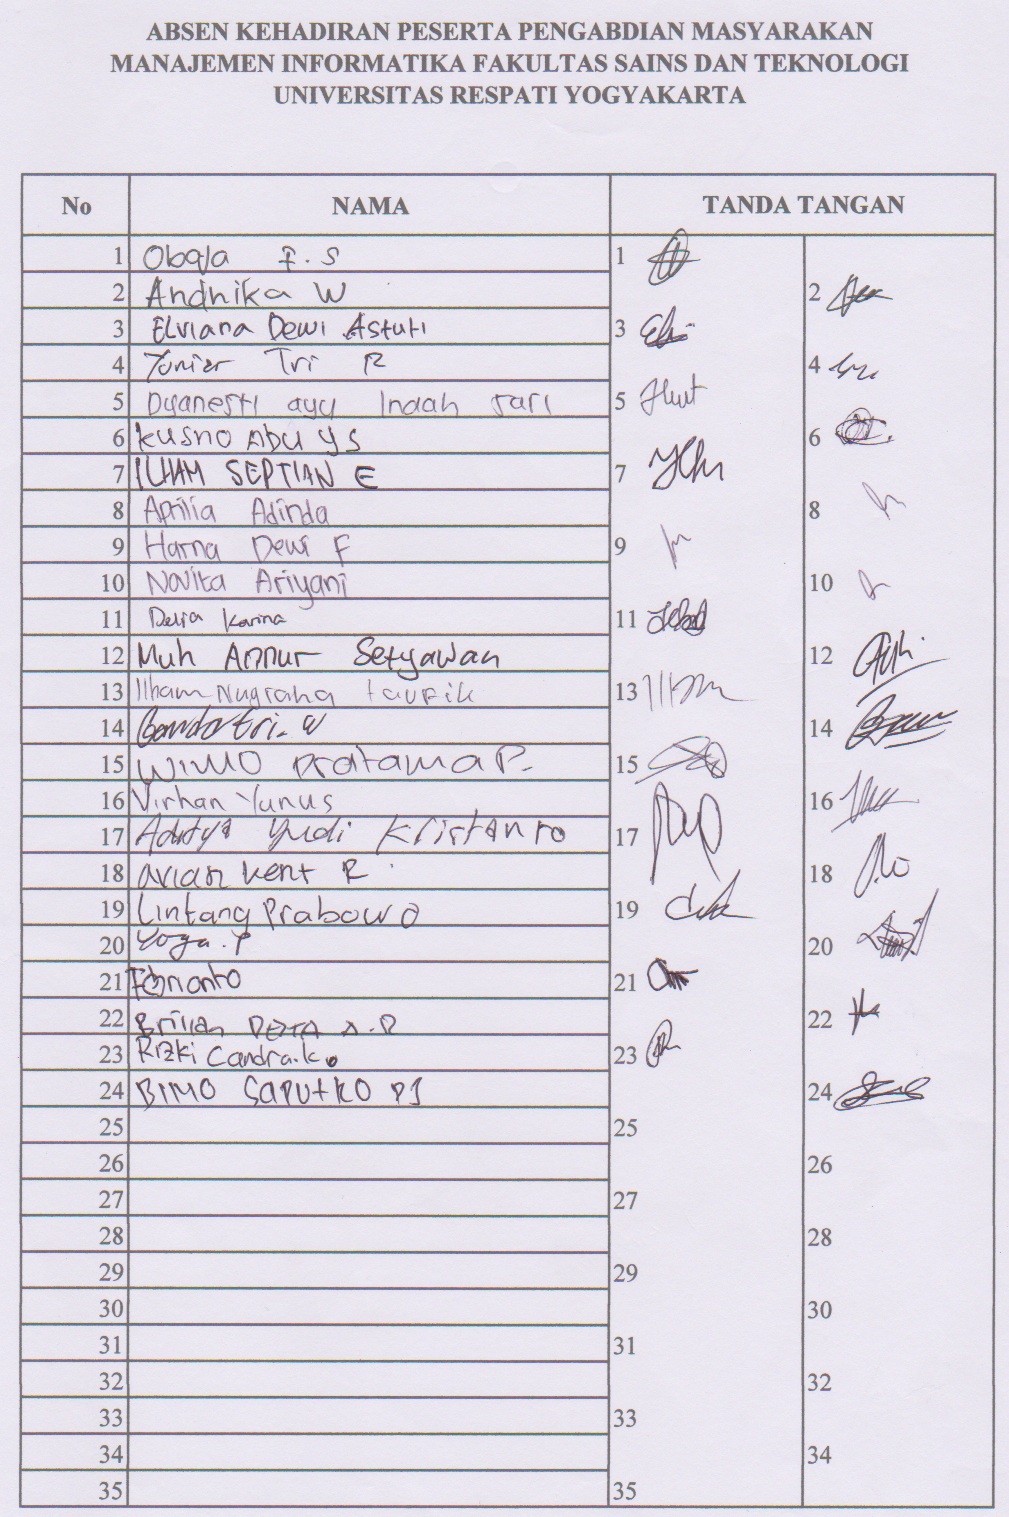 ABSEN KEHADIRAN PESERTA PENGABDIAN MASYARAKAN
MANAJEMEN INFORMATIKA FAKULTAS SAINS DAN TEKNOLOGI
UNIVERSITAS RESPATI YOGYAKARTA
No NAMA TANDA TANGAN
1 Obaja F.S 1
2 Andhika W 2
3 Elviana Dewi Astuti 3
4 Tri R 4
5 Dyanesti ayu Indah sari 5
6 Kusno Abu YS 6
7 ILHAM SEPTIAN E 7
8 Aprilia Adinda 8
9 Harna Dewi F 9
10 Novita Ariyani 10
11 Delia Karina 11
12 Muh Annur Setyawan 12
13 Ilham Nugraha taufik 13
14 tri. W 14
15 WIMO pratama P. 15
16 Virhan Yunus 16
17 Aditya Yudi Kristanto 17
18 avian kent R 18
19 Lintang Prabowo 19
20 Yoga.P 20
21 Febrianto 21
22 Brilian A.P 22
23 Rizki Candra.k. 23
24 BIMO SAPUTRO PJ 24
25 25
26 26
27 27
28 28
29 29
30 30
31 31
32 32
33 33
34 34
35 35